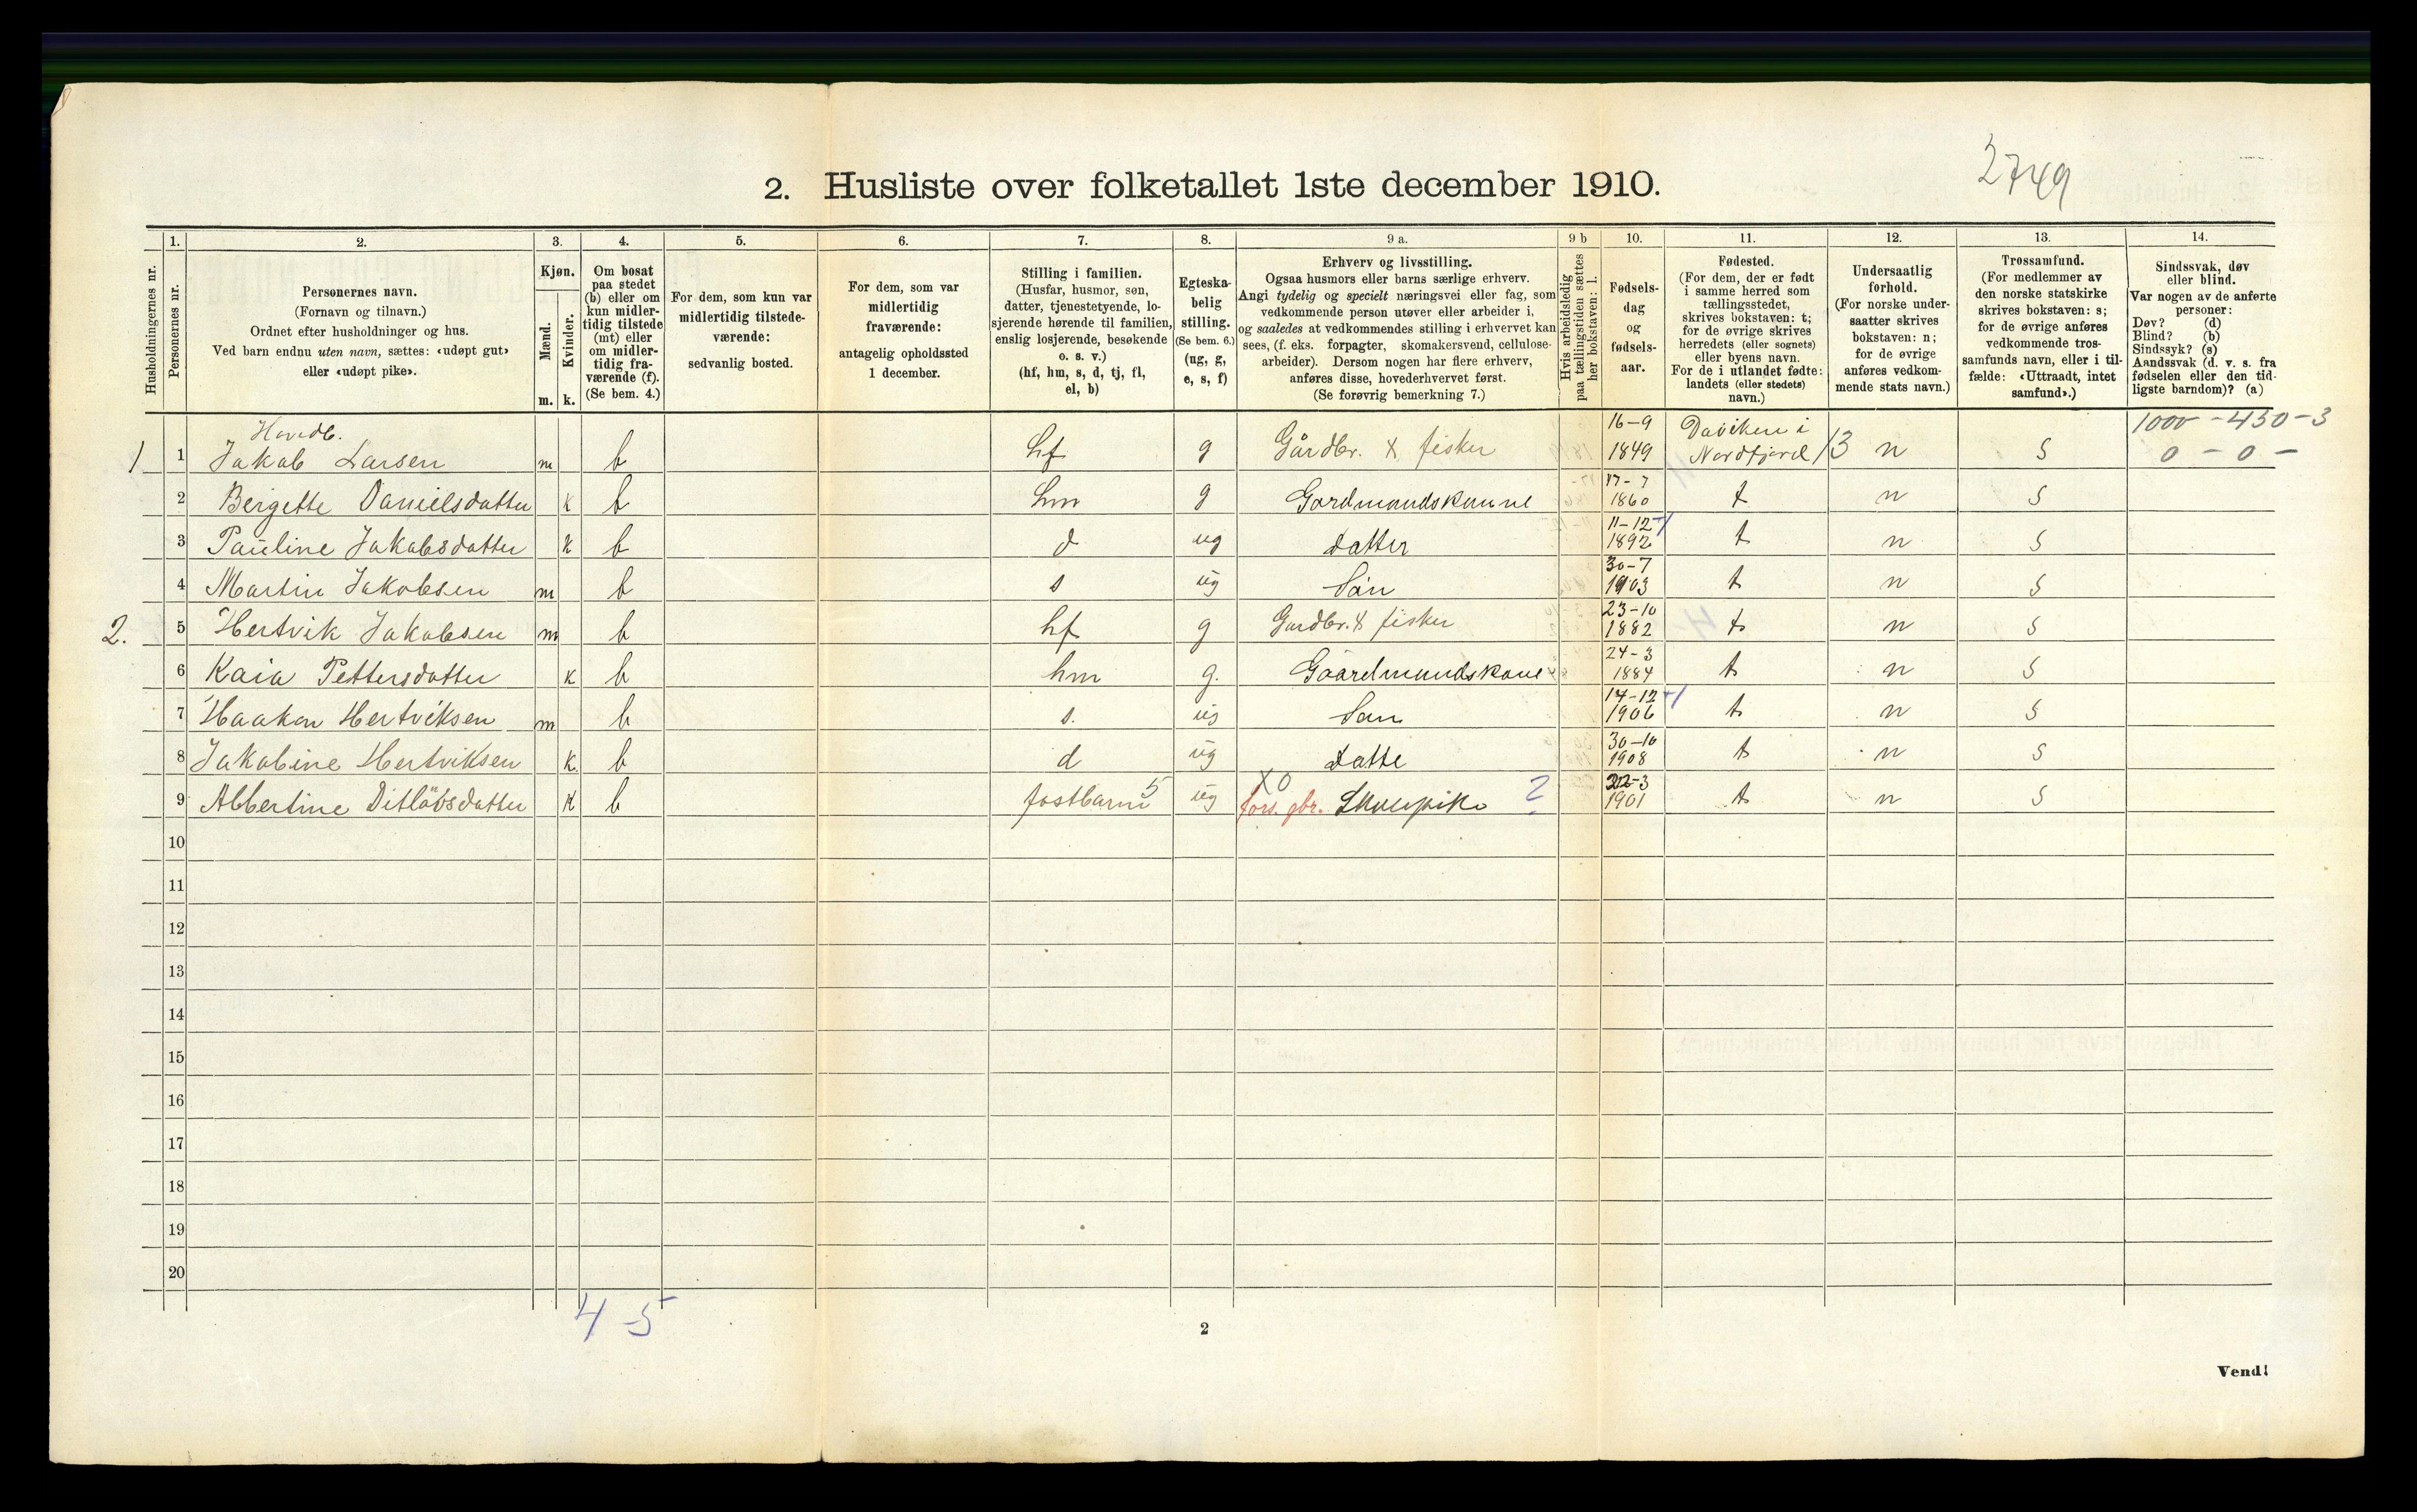 2749
2. Husliste over folketallet 1ste december 1910.
1. 2. 3. 4. 5. 6. 7. 8. 9 a. 9 b 10. 11. 12. 13. 14.
Husholdningernes nr.
Personernes nr.
Personernes navn.
(Fornavn og tilnavn.)
Ordnet efter husholdninger og hus.
Ved barn endnu uten navn, sættes: «udøpt gut»
eller «udøpt pike».
Kjøn.
Mænd.
Kvinder.
m. k.
Om bosat
paa stedet
(b) eller om
kun midler-
tidig tilstede
(mt) eller
om midler-
tidig fra-
værende (f).
(Se bem. 4.)
For dem, som kun var
midlertidig tilstede-
værende:
sedvanlig bosted.
For dem, som var
midlertidig
fraværende:
antagelig opholdssted
1 december.
Stilling i familien.
(Husfar, husmor, søn,
datter, tjenestetyende, lo-
sjerende hørende til familien,
enslig losjerende, besøkende
o. s. v.)
(hf, hm, s, d, tj, fl,
el, b)
Egteska-
belig
stilling.
(Se bem. 6.)
(ug, g,
e, s, f)
Erhverv og livsstilling.
Ogsaa husmors eller barns særlige erhverv.
Angi tydelig og specielt næringsvei eller fag, som
vedkommende person utøver eller arbeider i,
og saaledes at vedkommendes stilling i erhvervet kan
sees, (f. eks. forpagter, skomakersvend, cellulose-
arbeider). Dersom nogen har flere erhverv,
anføres disse, hovederhvervet først.
(Se forøvrig bemerkning 7.)
Hvis arbeidsledig
paa tællingstiden sættes
her bokstaven: l.
Fødsels-
dag
og
fødsels-
aar.
Fødested.
(For dem, der er født
i samme herred som
tællingsstedet,
skrives bokstaven: t;
for de øvrige skrives
herredets (eller sognets)
eller byens navn.
For de i utlandet fødte:
landets (eller stedets)
navn.)
Undersaatlig
forhold.
(For norske under-
saatter skrives
bokstaven: n;
for de øvrige
anføres vedkom-
mende stats navn.)
Trossamfund.
(For medlemmer av
den norske statskirke
skrives bokstaven: s;
for de øvrige anføres
vedkommende tros-
samfunds navn, eller i til-
fælde: «Uttraadt, intet
samfund».)
Sindssvak, døv
eller blind.
Var nogen av de anførte
personer:
Døv? (d)
Blind? (b)
Sindssyk? (s)
Aandssvak (d. v. s. fra
fødselen eller den tid-
ligste barndom)? (a)
Hovedb. 16-9 Daviken i 1000 - 450 - 3
1 1 Jakob Larsen m b hf g Gårdbr. X fisker 1849 Nordfjord 13 n s 0 - 0 -
17-7
2 Bergette Danielsdatter k b hm g Gardmandskonne 1860 t n s
11-12 +1
3 Pauline Jakobsdatter k b d ug datter 1892 t n s
30-7
4 Martin Jakobsen m b s ug Søn 1903 t n s
23-10
2. 5 Hertvik Jakobsen m b hf g Gardbr. X fisker 1882 t n s
24-3
6 Kaia Pettersdatter k b hm g. Gaardmandskone 1884 t n s
14-12 +1
7 Haakon Hertviksen m b s. ug Søn 1906 t n s
30-10
8 Jakobine Hertviksen k. b d ug datte 1908 t n s
5 X0 22-3
9 Albertine Ditløvsdatter k b fostbarn ug fors. gbr. Skolepike ? 1901 t n s
10
11
12
13
14
15
16
17
18
19
20
4-5
2
Vend!